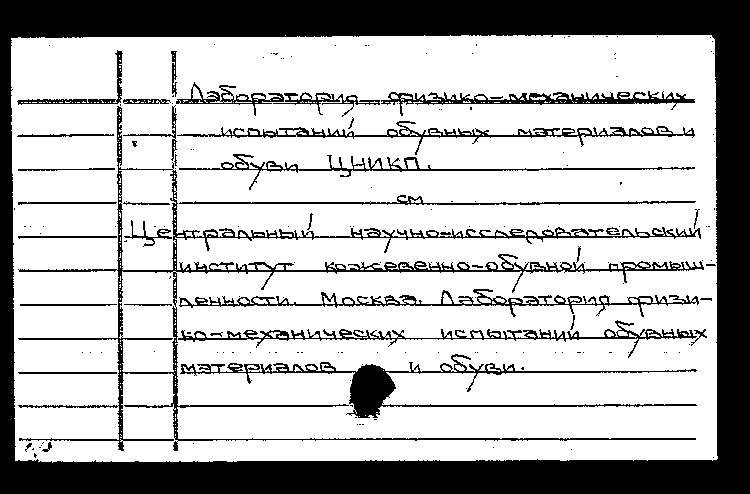 Лаборатория физико-механических
испытаний обувных материалов и
обуви ЦНИКП.
см
Центральный научно-исследовательский
институт кожевенно-обувной промыш-
ленности. Москва. Лаборатория физи-
ко-механических испытаний обувных
материалов и обуви.